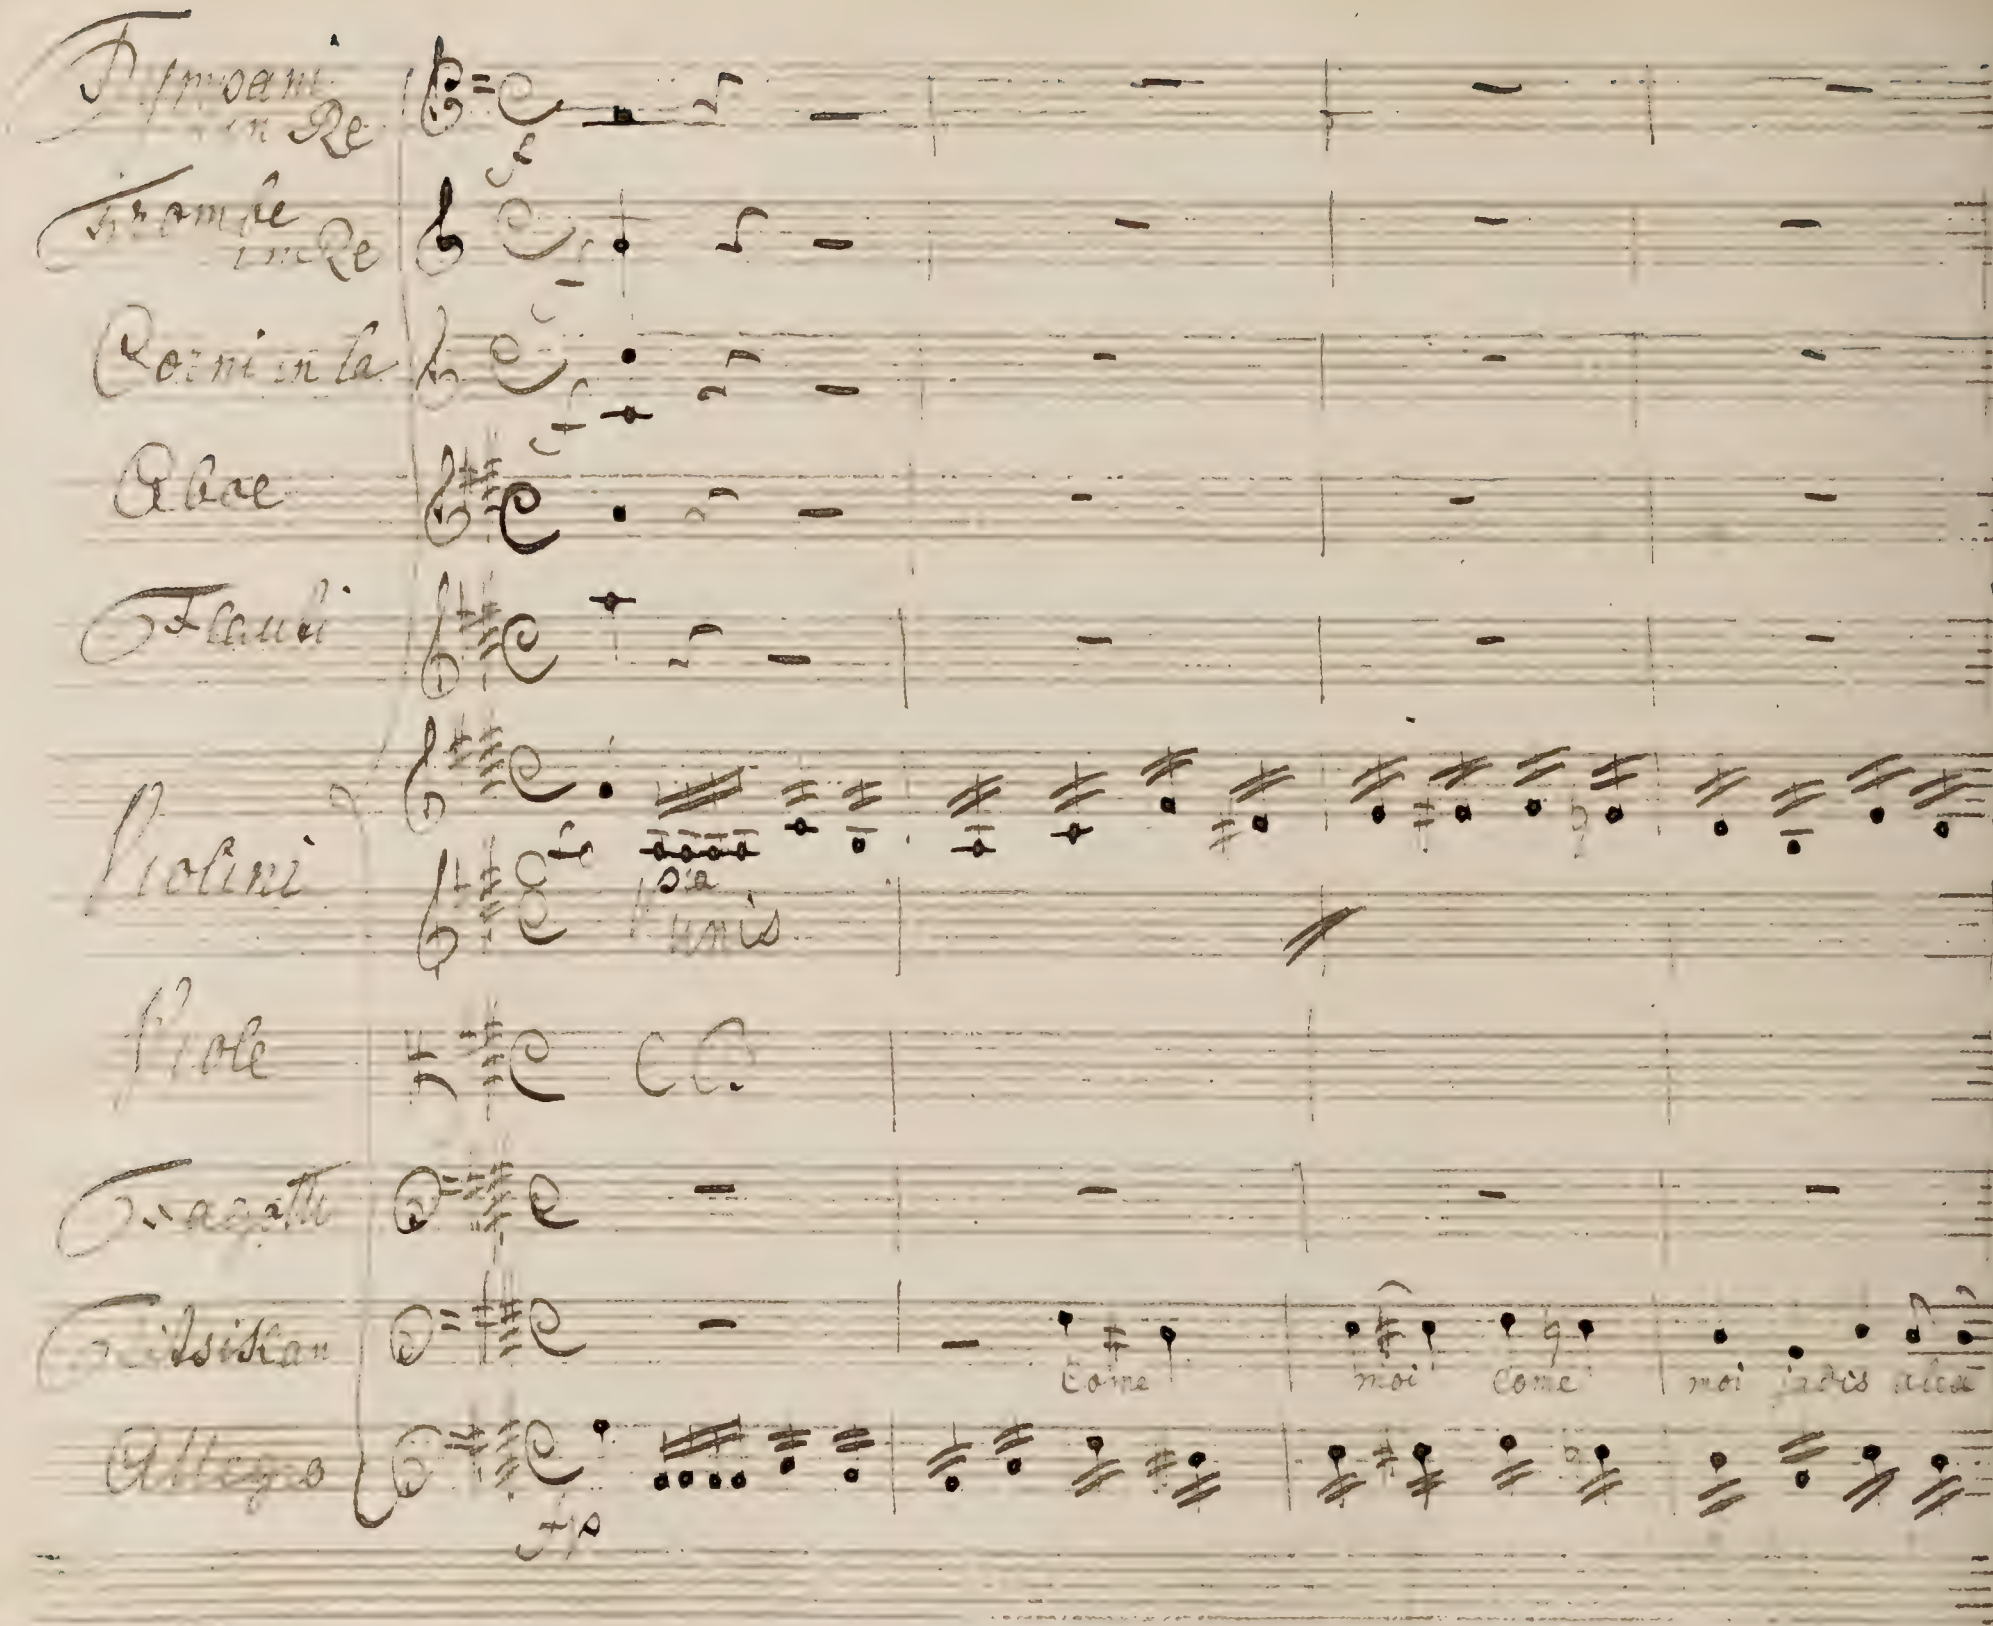 Tympani
in Re
Trombe
in Re
Corni in la
Oboe
Flauti
Violini
fp
unis
Viole
CB.
Fagotti
Come moi Come moi jadis
Allegro
fp